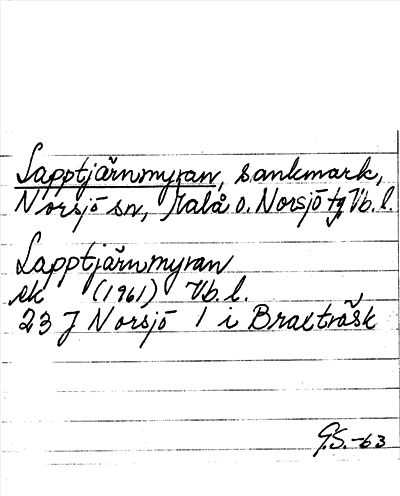 Lapptjärnmyran, sankmark,
Norsjö sn, Malå o. Norsjö tg, Vb. l.
Lapptjärnmyran
ek (1961) Vb. l.
23 J Norsjö 1 i Braxträsk
G.S.-63